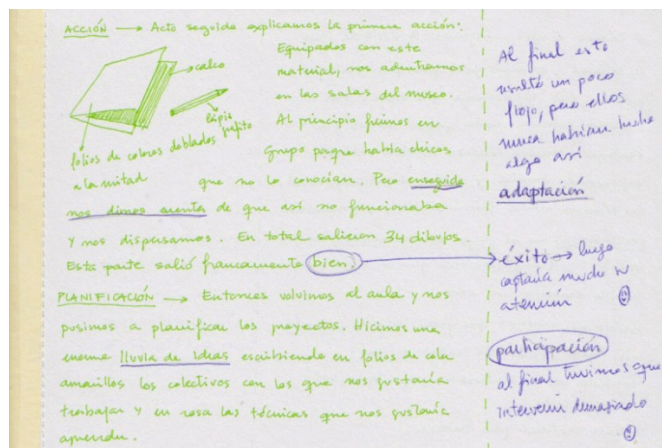 ACCIÓN → Acto seguido explicamos la primera acción:
Equipados con este
material, nos adentramos
en las salas del museo.
Al principio fuimos en
grupo porque había chicos
que no lo conocían. Pero enseguida
nos dimos cuenta de que así no funcionaba
y nos dispersamos. En total salieron 34 dibujos.
Esta parte salió francamente bien.
calco
lápiz
folios de colores doblados
a la mitad
PLANIFICACIÓN → Entonces volvimos al aula y nos
pusimos a planificar los proyectos. Hicimos una
enorme lluvia de ideas escribiendo en folios de color
amarillos los colectivos con los que nos gustaría
trabajar y en rosa las técnicas que nos gustaría
aprender.
Al final esto
resultó un poco
flojo, pero ellos
nunca habían hecho
algo así
adaptación
éxito → luego
captaría mucho su
atención
participación
al final tuvimos que
intervenir demasiado